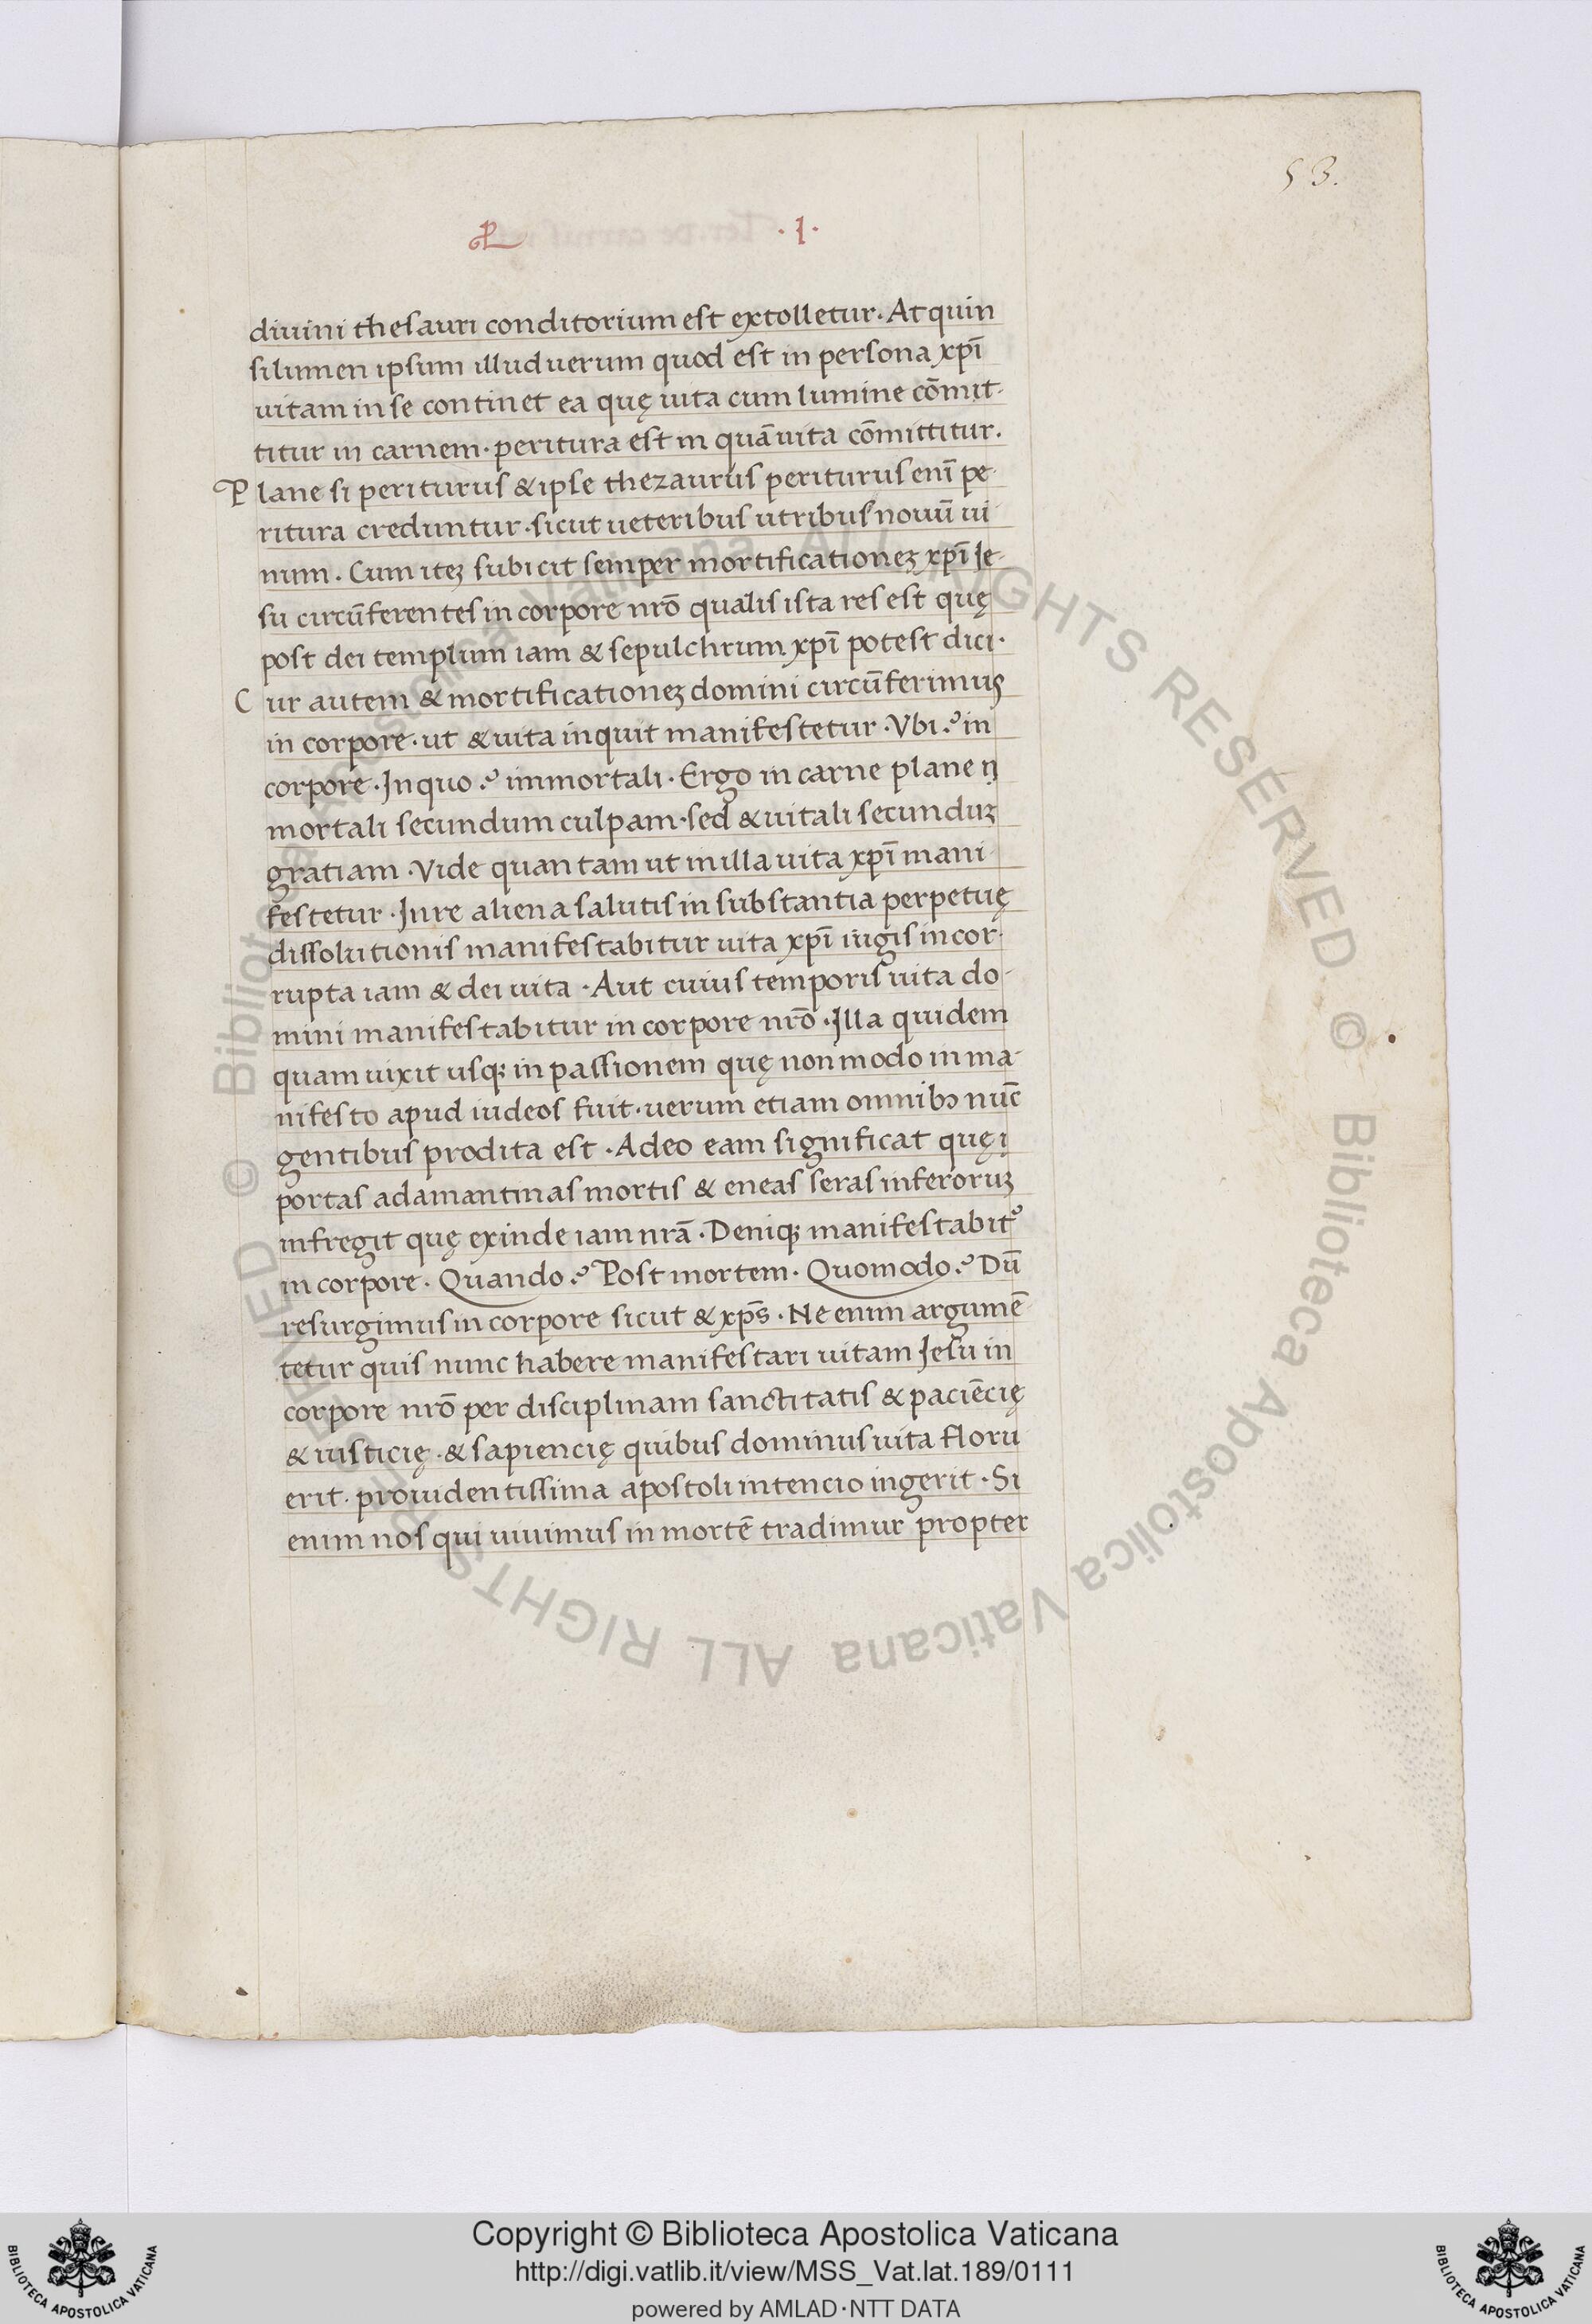 53.
PL ·I·
diuini thesauri conditorium est extolletur. At quin
si lumen ipsum illud uerum quod est in persona xp̄i
uitam in se continet ea quę uita cum lumine cōmit-
titur in carnem. peritura est in quā uita cōmittitur.
Plane si periturus & ipse thezaurus periturus enī pe-
ritura creduntur. sicut ueteribus utribus nouū ui
num. Cum iteꝫ subicit semper mortificationeꝫ xp̄i Je-
su circūferentes in corpore nr̄o qualis ista res est quę
post dei templum iam & sepulchrum xp̄i potest dici.
Cur autem & mortificationeꝫ domini circūferimus
in corpore. ut & uita inquit manifestetur. Vbi? in
corpore. In quo? in mortali. Ergo in carne plane ņ
mortali secundum culpam. sed & uitali secunduꝫ
gratiam. Vide quantam ut in illa uita xp̄i mani
festetur. In re aliena salutis in substantia perpetuę
dissolutionis manifestabitur uita xp̄i iugis incor-
rupta iam & dei uita. Aut cuius temporis uita do-
mini manifestabitur in corpore nr̄o. Illa quidem
quam uixit usqꝫ in passionem quę non modo in ma-
nifesto apud iudeos fuit. uerum etiam omnibꝰ nūc
gentibus prodita est. Adeo eam significat quę
portas adamantinas mortis & eneas seras inferoruꝫ
infregit quę exinde iam nr̄a. Deniqꝫ manifestabit᷒
in corpore. Quando? Post mortem. Quomodo? Dū
resurgimus in corpore sicut & xp̄s. Ne enim argumē
tetur quis nunc habere manifestari uitam Jesu in
corpore nr̄o per disciplinam sanctitatis & paciēcię
& iusticię. & sapiencię quibus dominus uita floru
erit. prouidentissima apostoli intencio ingerit. Si
enim nos qui uiuimus in mortē tradimur propter
© Biblioteca Apostolica Vaticana ALL RIGHTS RESERVED © Biblioteca Apostolica Vaticana ALL RIGHTS RESERVED
Copyright © Biblioteca Apostolica Vaticana
http://digi.vatlib.it/view/MSS_Vat.lat.189/0111
powered by AMLAD·NTT DATA
BIBLIOTECA APOSTOLICA VATICANA
BIBLIOTECA APOSTOLICA VATICANA